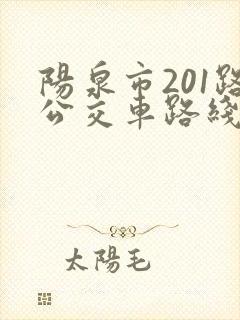 陽泉市201路
公交車路綫
太陽毛